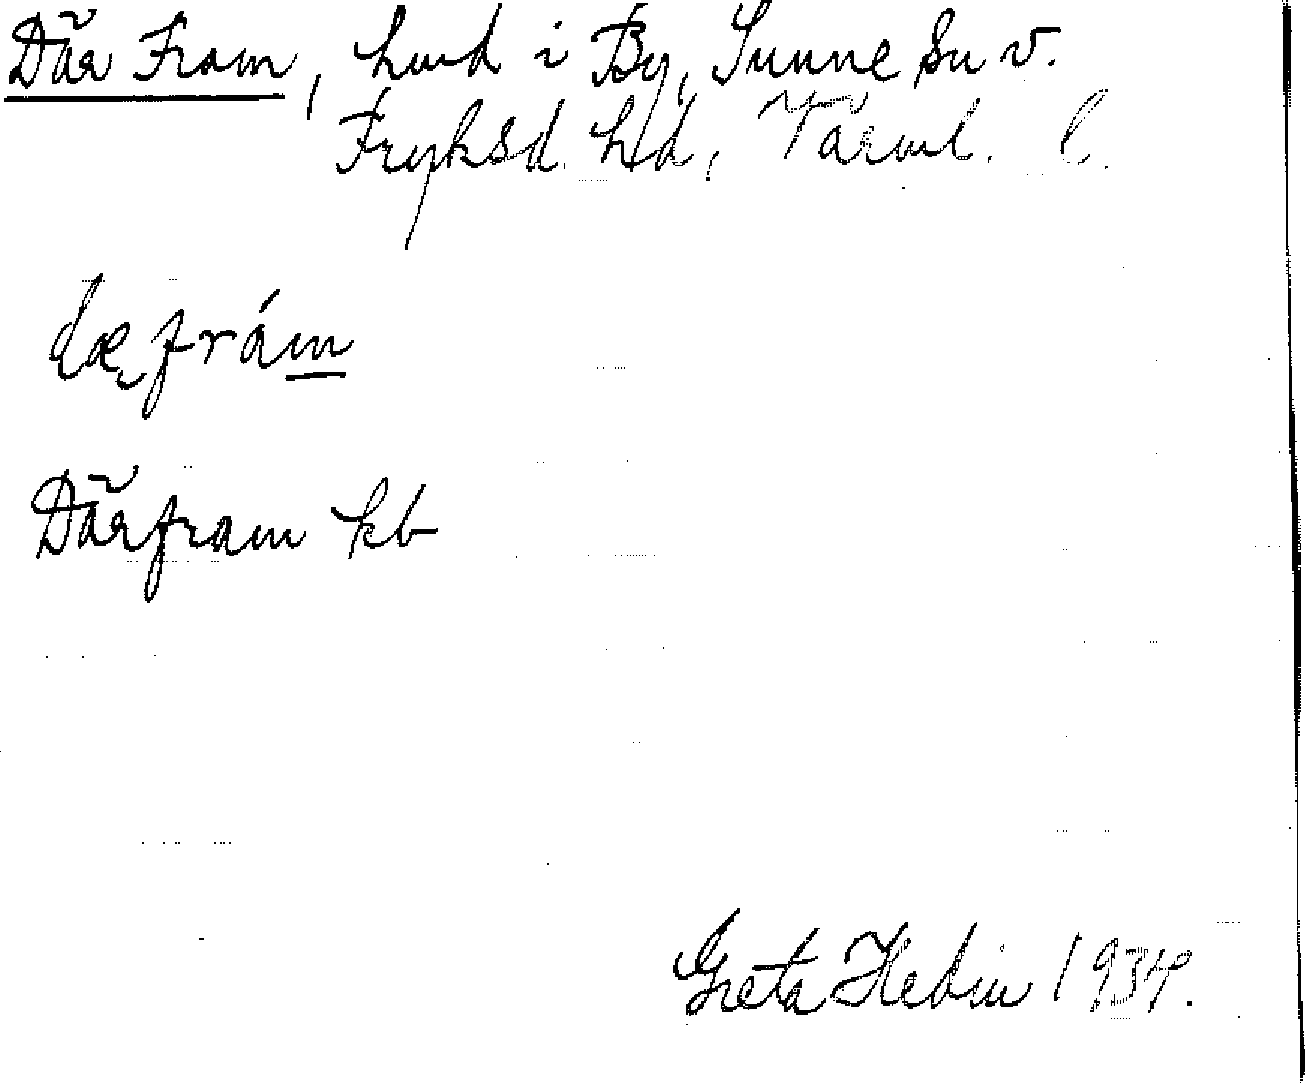 Där Fram, hmd i By, Sunne sn v.
Fryksd. hd, Värml. l.
dæfrám
Därfram kb
Greta Hedin 1934.